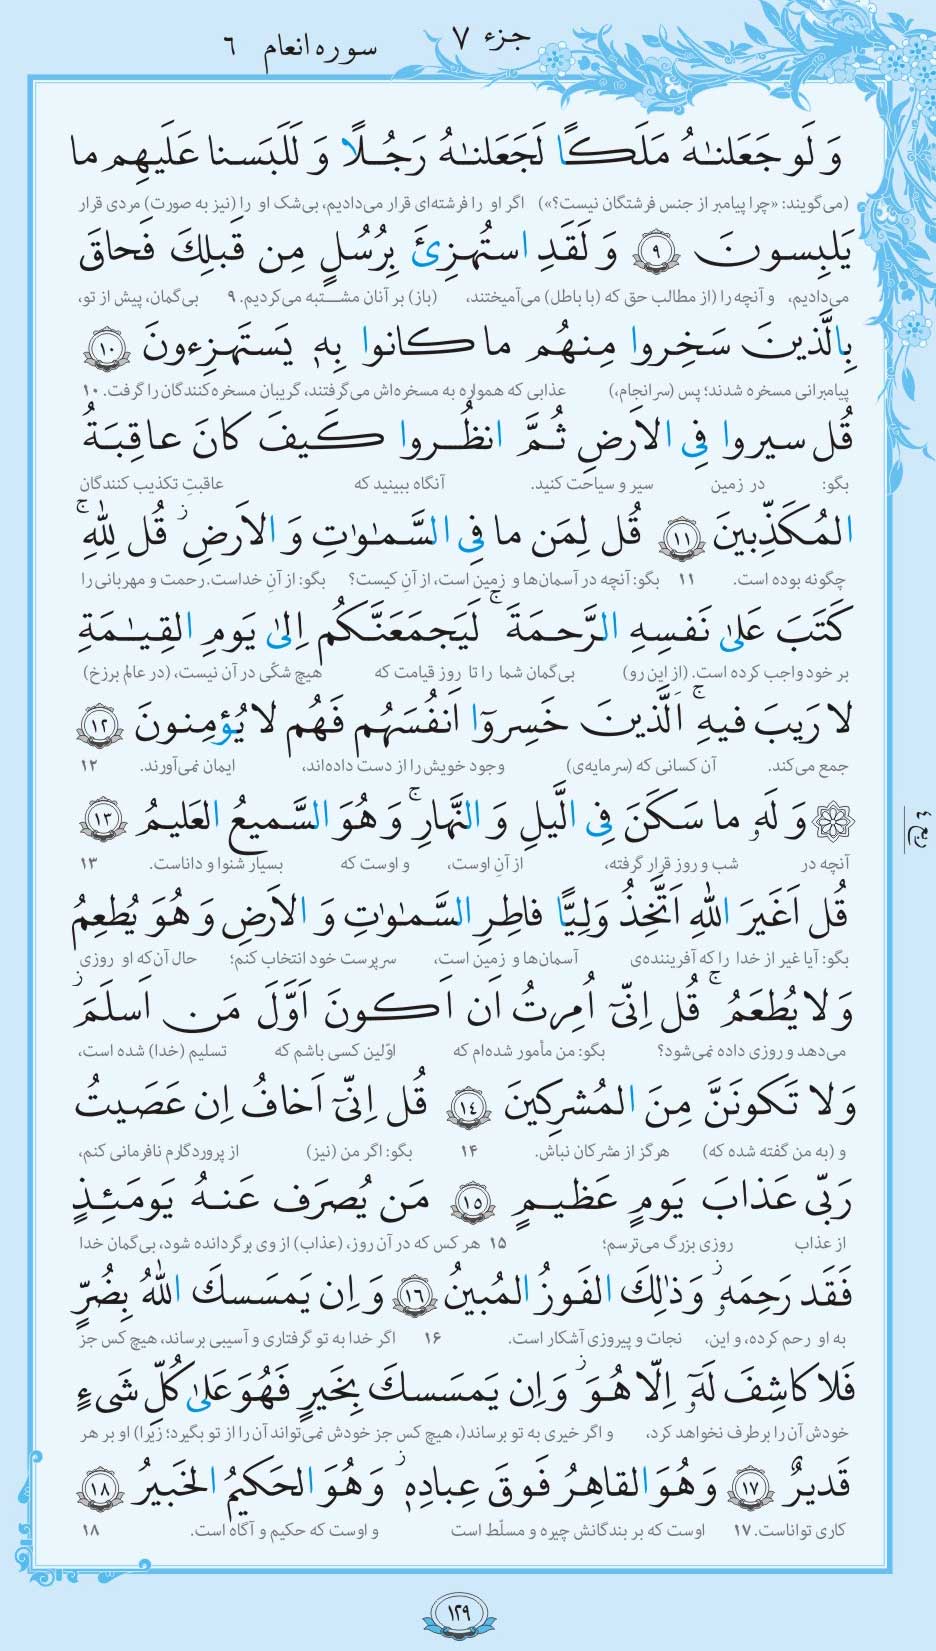 جزء ۷
سوره انعام ۶
وَ لَو جَعَلنٰهُ مَلَكًا لَجَعَلنٰهُ رَجُلًا وَ لَلَبَسنا عَلَيهِم ما
(می‌گویند: «چرا پیامبر از جنس فرشتگان نیست؟») اگر او را فرشته‌ای قرار می‌دادیم، بی‌شک او را (نیز به صورت) مردی قرار
يَلبِسونَ ۹ وَ لَقَدِ استُهزِئَ بِرُسُلٍ مِن قَبلِكَ فَحاقَ
می‌دادیم، و آنچه را (از مطالب حق که (با باطل) می‌آمیختند، (باز) بر آنان مشتبه می‌کردیم. ۹ بی‌گمان، پیش از تو،
بِالَّذينَ سَخِروا مِنهُم ما كانوا بِهٖ يَستَهزِءونَ ۱۰
پیامبرانی مسخره شدند؛ پس (سرانجام،) عذابی که همواره به مسخره‌اش می‌گرفتند، گریبان مسخره‌کنندگان را گرفت. ۱۰
قُل سيروا فِى الاَرضِ ثُمَّ انظُروا كَيفَ كانَ عاقِبَةُ
بگو: در زمین سیر و سیاحت کنید. آنگاه ببینید که عاقبتِ تکذیب کنندگان
المُكَذِّبينَ ۱۱ قُل لِمَن ما فِى السَّمٰوٰتِ وَ الاَرضِ ۖ قُل لِلّٰهِ ۚ
چگونه بوده است. ۱۱ بگو: آنچه در آسمان‌ها و زمین است، از آنِ کیست؟ بگو: از آنِ خداست. رحمت و مهربانی را
كَتَبَ عَلىٰ نَفسِهِ الرَّحمَةَ ۚ لَيَجمَعَنَّكُم اِلىٰ يَومِ القِيٰمَةِ
بر خود واجب کرده است. (از این رو) بی‌گمان شما را تا روز قیامت که هیچ شکّی در آن نیست، (در عالم برزخ)
لا رَيبَ فيهِ ۚ اَلَّذينَ خَسِروٓا اَنفُسَهُم فَهُم لا يُؤمِنونَ ۱۲
جمع می‌کند. آن کسانی که (سرمایه‌ی) وجود خویش را از دست داده‌اند، ایمان نمی‌آورند. ۱۲
وَ لَهٗ ما سَكَنَ فِى الَّيلِ وَ النَّهارِ ۚ وَ هُوَ السَّميعُ العَليمُ ۱۳
آنچه در شب و روز قرار گرفته، از آنِ اوست، و اوست که بسیار شنوا و داناست. ۱۳
ربع ٤
قُل اَغَيرَ اللّٰهِ اَتَّخِذُ وَلِيًّا فاطِرِ السَّمٰوٰتِ وَ الاَرضِ وَ هُوَ يُطعِمُ
بگو: آیا غیر از خدا را که آفریننده‌ی آسمان‌ها و زمین است، سرپرست خود انتخاب کنم؛ حال آن‌که او روزی
وَ لا يُطعَمُ ۚ قُل اِنّىٓ اُمِرتُ اَن اَكونَ اَوَّلَ مَن اَسلَمَ ۖ
می‌دهد و روزی داده نمی‌شود؟ بگو: من مأمور شده‌ام که اوّلین کسی باشم که تسلیم (خدا) شده است،
وَ لا تَكونَنَّ مِنَ المُشرِكينَ ۱٤ قُل اِنّىٓ اَخافُ اِن عَصَيتُ
و (به من گفته شده که) هرگز از مشرکان نباش. ۱۴ بگو: اگر من (نیز) از پروردگارم نافرمانی کنم،
رَبّى عَذابَ يَومٍ عَظيمٍ ۱۵ مَن يُصرَف عَنهُ يَومَئِذٍ
از عذاب روزی بزرگ می‌ترسم؛ ۱۵ هر کس که در آن روز، (عذاب) از وی برگردانده شود، بی‌گمان خدا
فَقَد رَحِمَهٗ ۖ وَ ذٰلِكَ الفَوزُ المُبينُ ۱۶ وَ اِن يَمسَسكَ اللّٰهُ بِضُرٍّ
به او رحم کرده، و این، نجات و پیروزی آشکار است. ۱۶ اگر خدا به تو گرفتاری و آسیبی برساند، هیچ کس جز
فَلا كاشِفَ لَهٗٓ اِلّا هُوَ ۖ وَ اِن يَمسَسكَ بِخَيرٍ فَهُوَ عَلىٰ كُلِّ شَىءٍ
خودش آن را برطرف نخواهد کرد، و اگر خیری به تو برساند(، هیچ کس جز خودش نمی‌تواند آن را از تو بگیرد؛ زیرا) او بر هر
قَديرٌ ۱۷ وَ هُوَ القاهِرُ فَوقَ عِبادِهٖ ۖ وَ هُوَ الحَكيمُ الخَبيرُ ۱۸
کاری تواناست. ۱۷ اوست که بر بندگانش چیره و مسلّط است و اوست که حکیم و آگاه است. ۱۸
۱۲۹